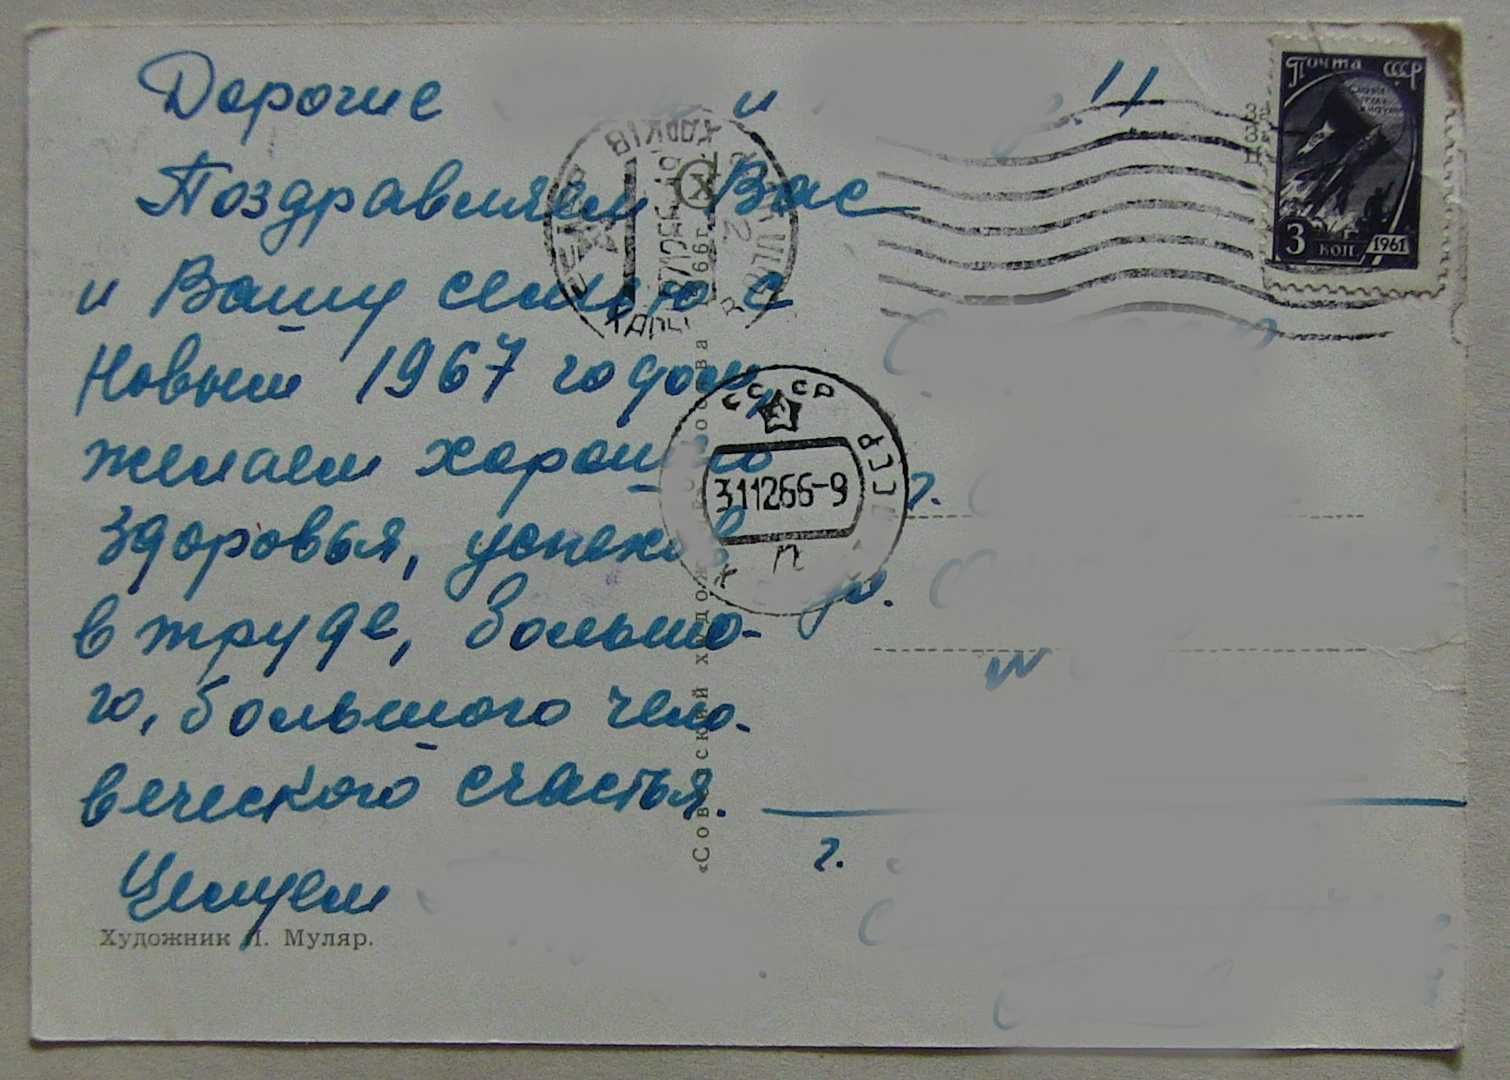 Дорогие и !!
Поздравляем Вас
и Вашу семью с
Новым 1967 годом,
желаем хорошего
здоровья, успехов
в труде, большо-
го, большого чело-
веческого счастья.
Целуем
Художник Л. Муляр.
Почта СССР
3 коп 1961
ХАРКІВ
СССР
311266-9
П
г.
ул.
г.